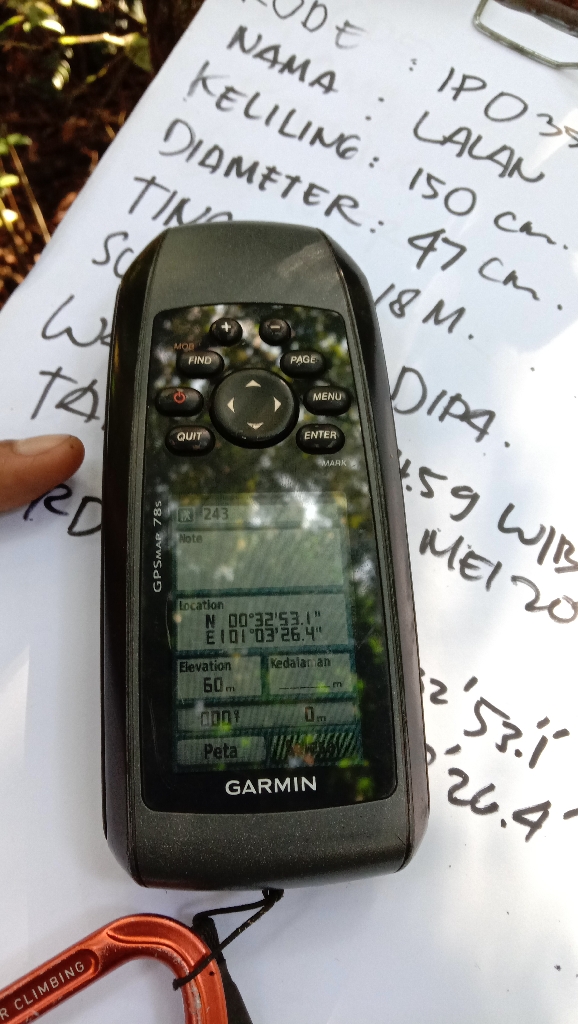 KODE : IP035
NAMA : LALAN
KELILING : 150 cm.
DIAMETER : 47 cm.
18 M.
DIPA.
59 WIB
MEI 20
2'53.1"
'26.4"
+ -
MOB
FIND PAGE
MENU
QUIT ENTER
MARK
GPSMAP 78s
243
Note
Location
N 00°32'53.1"
E101°03'26.4"
Elevation
60 m
m
000° 0m
Peta
GARMIN
R CLIMBING